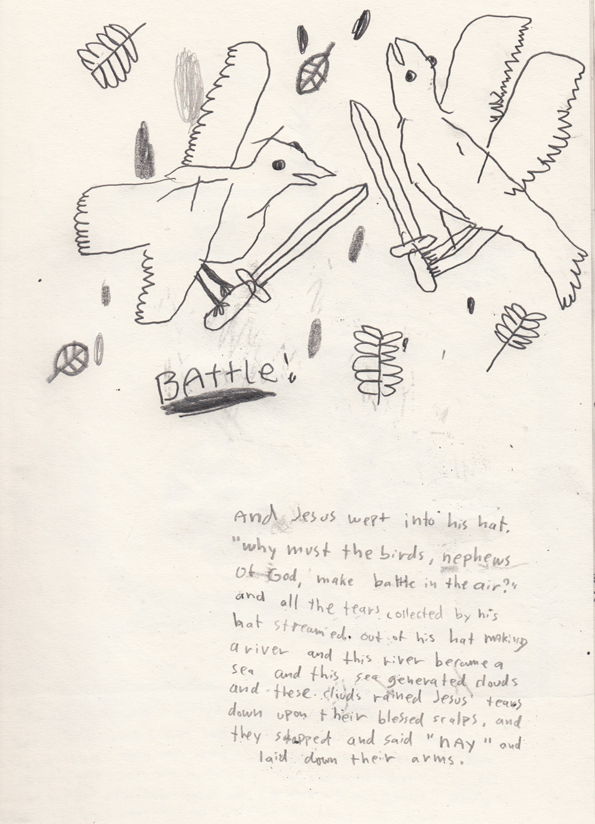 BAttle!
And Jesus wept into his hat.
"why must the birds, nephews
of God, make battle in the air?"
and all the tears collected by his
hat streamed out of his hat making
a river and this river became a
sea and this sea generated clouds
and these clouds rained Jesus' tears
down upon their blessed scalps, and
they stopped and said "NAY" and
laid down their arms.